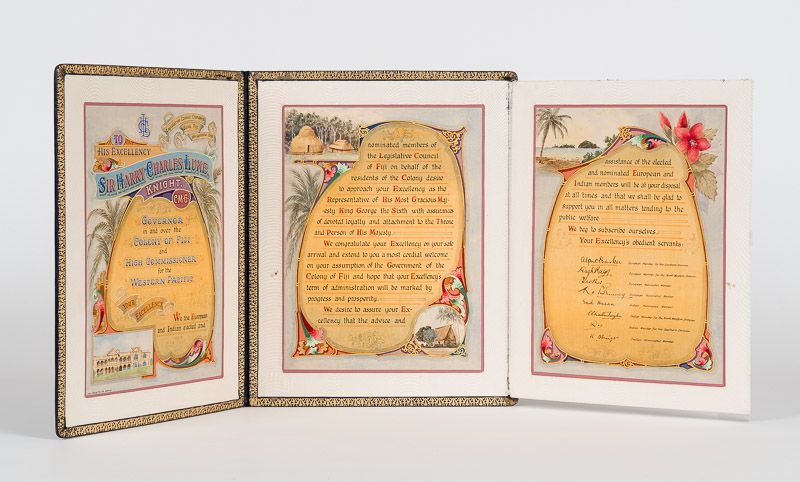 TO
HIS EXCELLENCY
SIR HARRY CHARLES LUKE,
KNIGHT,
C.M.G.
GOVERNOR
in and over the
COLONY OF FIJI
and
HIGH COMMISSIONER
for the
WESTERN PACIFIC
YOUR EXCELLENCY
We the European
and Indian elected and
nominated members of
the Legislative Council
of Fiji on behalf of the
residents of the Colony desire
to approach your Excellency as the
Representative of His Most Gracious Maj-
esty King George the Sixth with assurances
of devoted loyalty and attachment to the Throne
and Person of His Majesty.
We congratulate your Excellency on your safe
arrival and extend to you a most cordial welcome
on your assumption of the Government of the
Colony of Fiji and hope that your Excellency's
term of administration will be marked by
progress and prosperity.
We desire to assure your Ex-
cellency that the advice and
assistance of the elected
and nominated European and
Indian members will be at your disposal
at all times and that we shall be glad to
support you in all matters tending to the
public welfare
We beg to subscribe ourselves
Your Excellency's obedient servants: